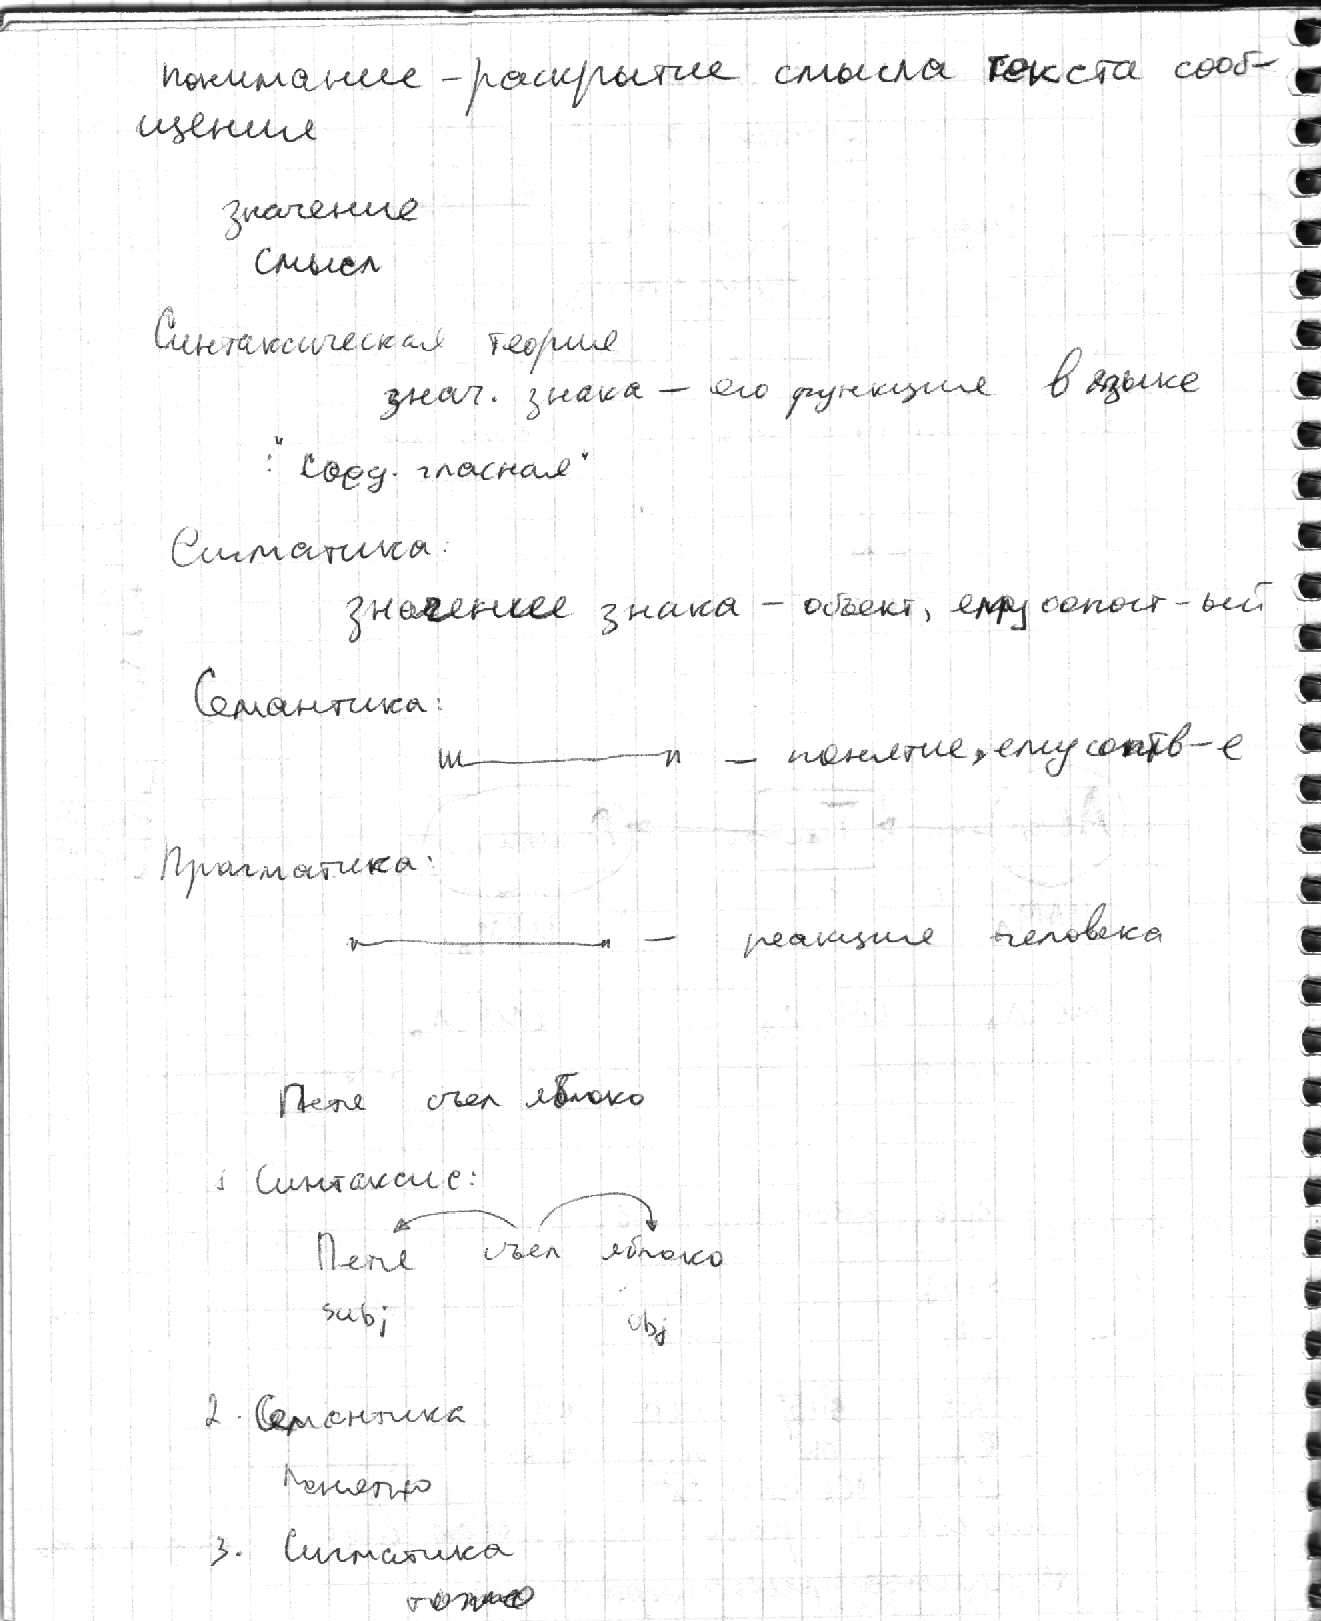 понимание – раскрытие смысла текста сооб-
щения
значение
смысл
Синтаксическая теория
знач. знака – его функция в языке
гласная"
Сигматика:
значение знака – объект, ему сопост-ый
Семантика:
" — " – понятие, ему соотв-е
Прагматика:
" — " – реакция человека
Петя съел яблоко
1 Синтаксис:
Петя съел яблоко
subj obj
2. Семантика
Понятно
3. Сигматика
тоже